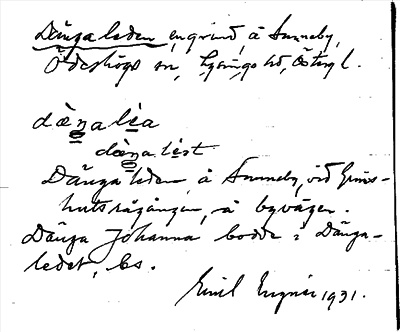 Dängaleden, en grind, å Sunneby,
Ödeshögs sn, Lysings hd, Östergl.
dæŋaléa
dæŋalést
Dänga leden å Sunneby, vid Grims-
hultsrågången, å byvägen.
Dänga Johanna bodde i Dänga-
ledet, bs.
Emil 1931.